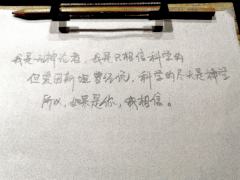 我是无神论者，我是只相信科学的
但爱因斯坦曾经说，科学的尽头是神学
所以，如果是你，我相信。